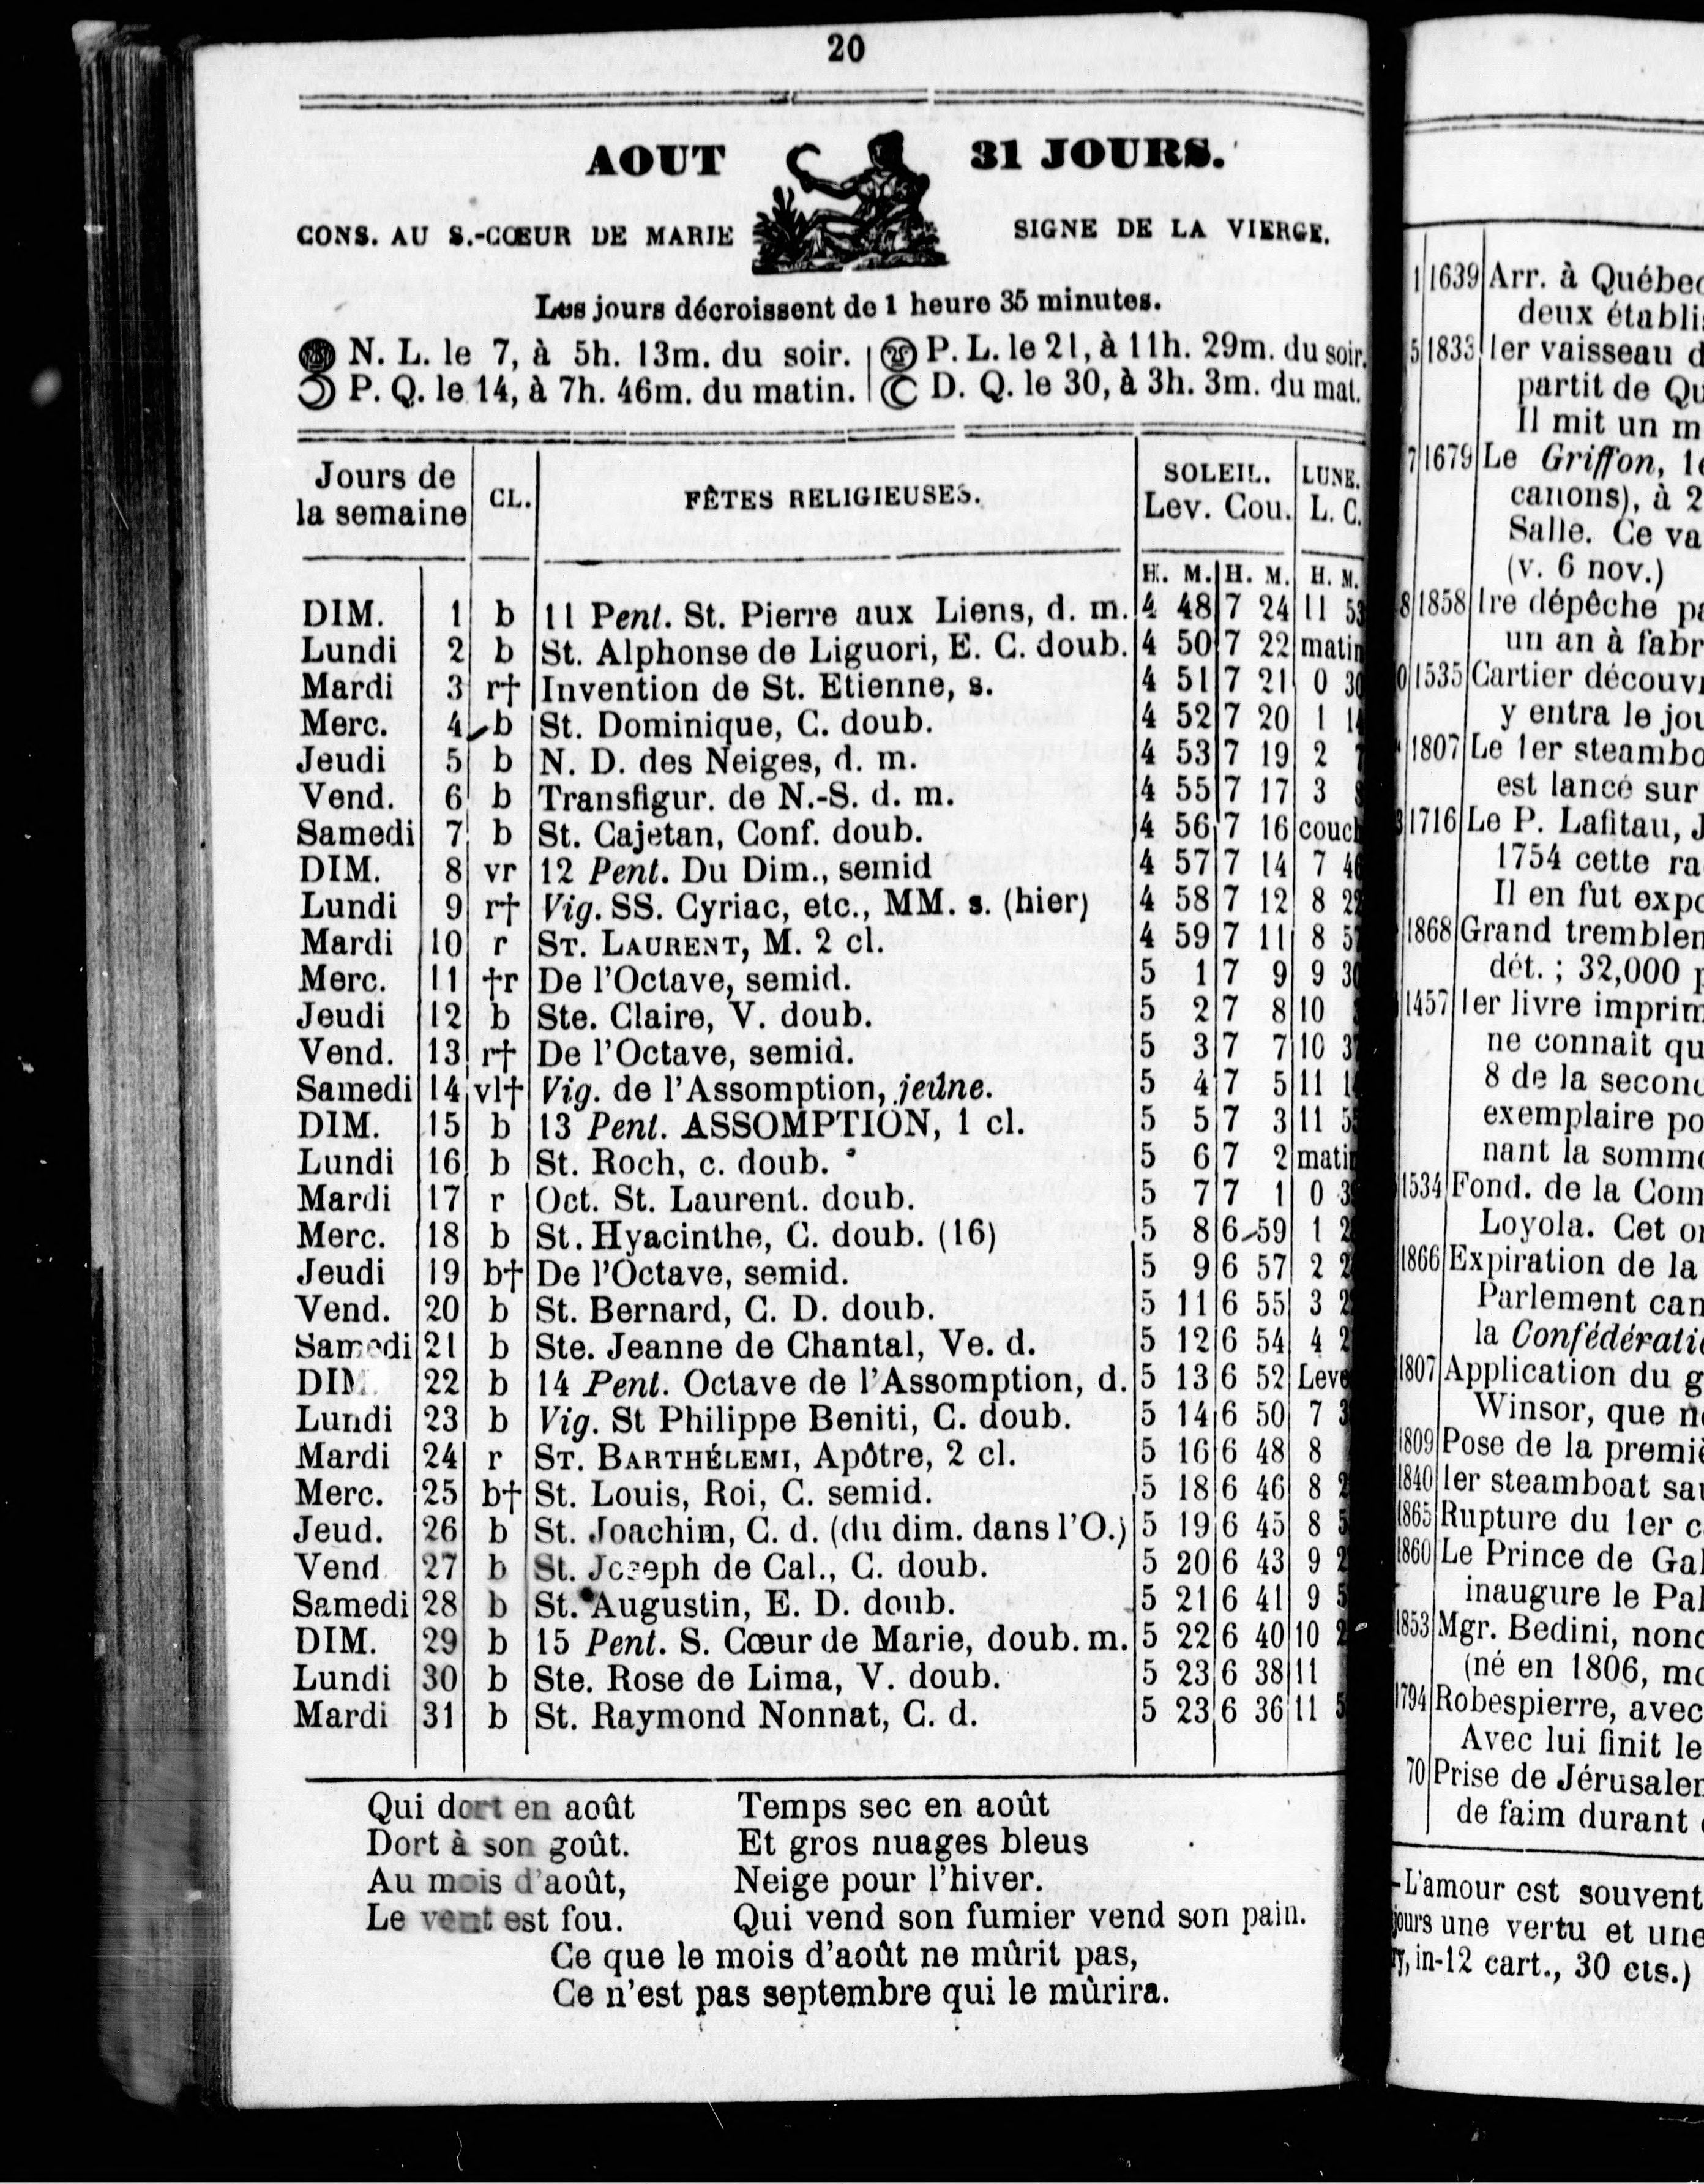 20
AOUT 31 JOURS.
CONS. AU S.-CŒUR DE MARIE SIGNE DE LA VIERGE.
Les jours décroissent de 1 heure 35 minutes.
N. L. le 7, à 5h. 13m. du soir. P. L. le 21, à 11h. 29m. du soir.
P. Q. le 14, à 7h. 46m. du matin. D. Q. le 30, à 3h. 3m. du mat.
Jours de la semaine CL. FÊTES RELIGIEUSES. SOLEIL. Lev. Cou. LUNE. L. C.
H. M. H. M. H. M.
DIM. 1 b 11 Pent. St. Pierre aux Liens, d. m. 4 48 7 24 11 53
Lundi 2 b St. Alphonse de Liguori, E. C. doub. 4 50 7 22 matin
Mardi 3 r† Invention de St. Etienne, s. 4 51 7 21 0 30
Merc. 4 b St. Dominique, C. doub. 4 52 7 20 1 14
Jeudi 5 b N. D. des Neiges, d. m. 4 53 7 19 2 7
Vend. 6 b Transfigur. de N.-S. d. m. 4 55 7 17 3
Samedi 7 b St. Cajetan, Conf. doub. 4 56 7 16 couch
DIM. 8 vr 12 Pent. Du Dim., semid 4 57 7 14 7 46
Lundi 9 r† Vig. SS. Cyriac, etc., MM. s. (hier) 4 58 7 12 8 22
Mardi 10 r ST. LAURENT, M. 2 cl. 4 59 7 11 8 57
Merc. 11 †r De l'Octave, semid. 5 1 7 9 9 30
Jeudi 12 b Ste. Claire, V. doub. 5 2 7 8 10
Vend. 13 r† De l'Octave, semid. 5 3 7 7 10 37
Samedi 14 vl† Vig. de l'Assomption, jeûne. 5 4 7 5 11 14
DIM. 15 b 13 Pent. ASSOMPTION, 1 cl. 5 5 7 3 11 5
Lundi 16 b St. Roch, c. doub. 5 6 7 2 matin
Mardi 17 r Oct. St. Laurent. doub. 5 7 7 1 0 3
Merc. 18 b St. Hyacinthe, C. doub. (16) 5 8 6 59 1 2
Jeudi 19 b† De l'Octave, semid. 5 9 6 57 2 2
Vend. 20 b St. Bernard, C. D. doub. 5 11 6 55 3 2
Samedi 21 b Ste. Jeanne de Chantal, Ve. d. 5 12 6 54 4 2
DIM. 22 b 14 Pent. Octave de l'Assomption, d. 5 13 6 52 Leve
Lundi 23 b Vig. St Philippe Beniti, C. doub. 5 14 6 50 7 3
Mardi 24 r ST. BARTHÉLEMI, Apôtre, 2 cl. 5 16 6 48 8
Merc. 25 b† St. Louis, Roi, C. semid. 5 18 6 46 8 2
Jeud. 26 b St. Joachim, C. d. (du dim. dans l'O.) 5 19 6 45 8 5
Vend. 27 b St. Joseph de Cal., C. doub. 5 20 6 43 9 2
Samedi 28 b St. Augustin, E. D. doub. 5 21 6 41 9 5
DIM. 29 b 15 Pent. S. Cœur de Marie, doub. m. 5 22 6 40 10 2
Lundi 30 b Ste. Rose de Lima, V. doub. 5 23 6 38 11
Mardi 31 b St. Raymond Nonnat, C. d. 5 23 6 36 11 5
Qui dort en août
Dort à son goût.
Au mois d'août,
Le vent est fou.
Temps sec en août
Et gros nuages bleus
Neige pour l'hiver.
Qui vend son fumier vend son pain.
Ce que le mois d'août ne mûrit pas,
Ce n'est pas septembre qui le mûrira.
1 1639 Arr. à Québec
deux établi
5 1833 1er vaisseau d
partit de Qu
Il mit un m
7 1679 Le Griffon, 1e
canons), à 2
Salle. Ce va
(v. 6 nov.)
8 1858 1re dépêche pa
un an à fabr
0 1535 Cartier découvr
y entra le jou
1807 Le 1er steambo
est lancé sur
3 1716 Le P. Lafitau, J
1754 cette ra
Il en fut expo
1868 Grand tremblem
dét. ; 32,000 p
1457 1er livre imprim
ne connait qu
8 de la second
exemplaire po
nant la somme
1534 Fond. de la Com
Loyola. Cet or
1866 Expiration de la
Parlement can
la Confédératio
1807 Application du g
Winsor, que n
1809 Pose de la premiè
1840 1er steamboat sau
1865 Rupture du 1er c
1860 Le Prince de Gal
inaugure le Pal
1853 Mgr. Bedini, nonc
(né en 1806, mo
1794 Robespierre, avec
Avec lui finit le
70 Prise de Jérusalem
de faim durant
-L'amour est souvent
jours une vertu et une
y, in-12 cart., 30 cts.)